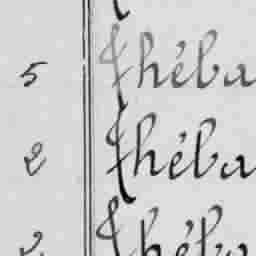 5 Théba
2 Théba
2 Théba